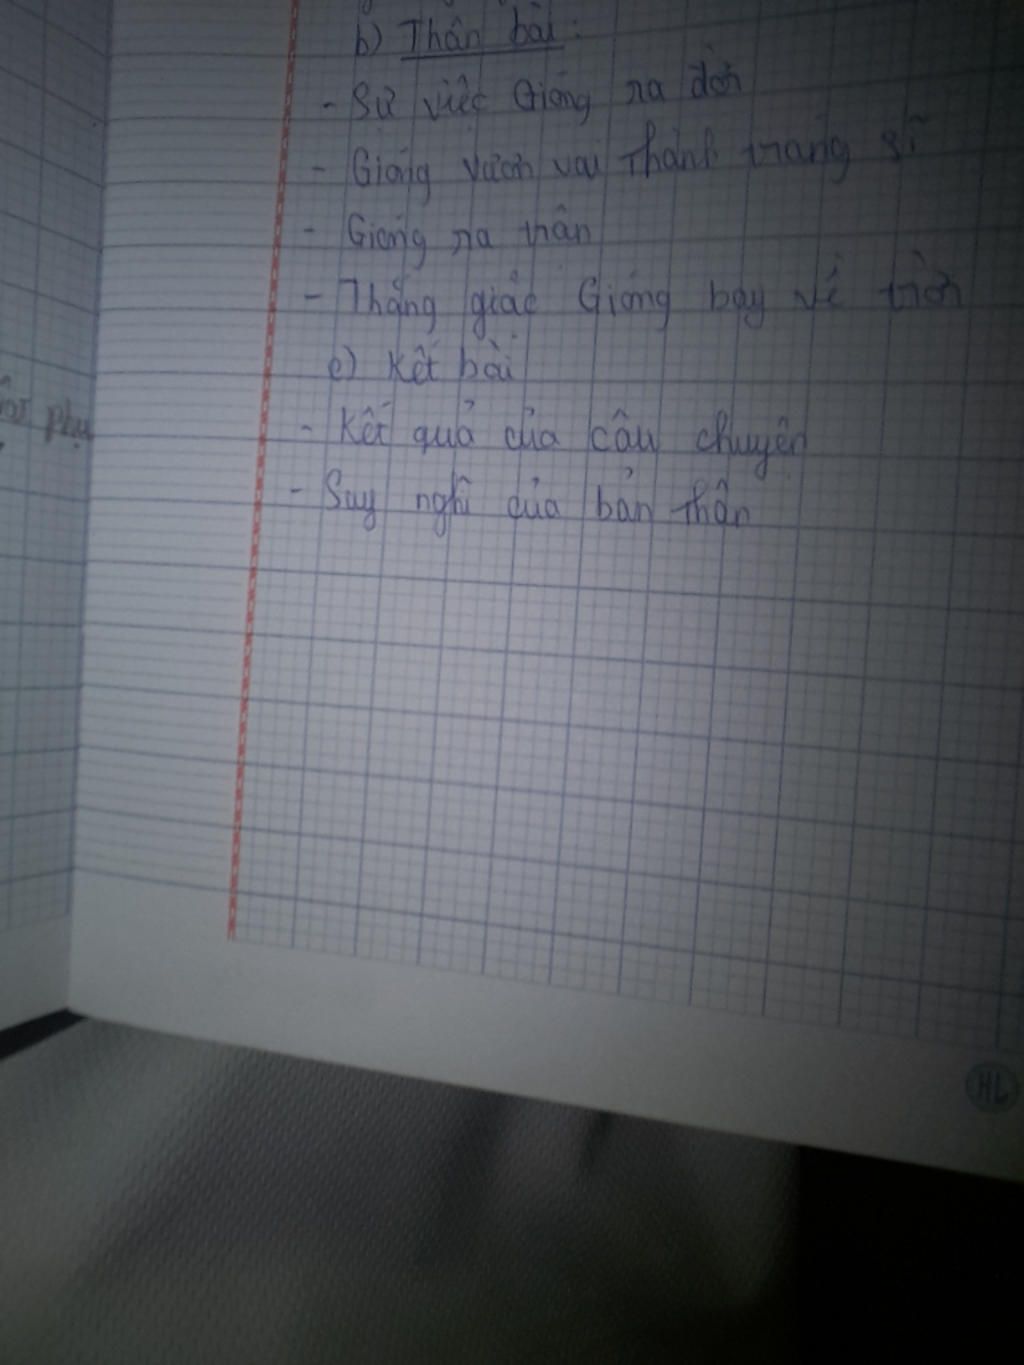 b) Thân bài:
- Sự việc Gióng ra đời
- Gióng vươn vai thành tráng sĩ
- Gióng ra trận
- Thắng giặc Gióng bay về trời
c) Kết bài
- Kết quả của câu chuyện
- Suy nghĩ của bản thân
phụ
HL